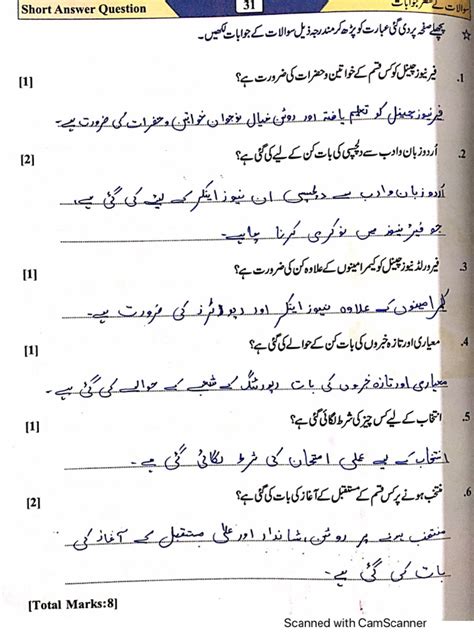 Short Answer Question 31 سوالات کے مختصر جوابات
☆ پچھلے صفحہ پر دی گئی عبارت کو پڑھ کر مندرجہ ذیل سوالات کے جوابات لکھیں۔
1. فیر نیوز چینل کو کس قسم کے خواتین و حضرات کی ضرورت ہے؟ [1]
فیر نیوز چینل کو تعلیم یافتہ اور روشن خیال نوجوان خواتین و حضرات کی ضرورت ہے۔
2. اُردو زبان و ادب سے دلچسپی کی بات کن کے لیے کی گئی ہے؟ [2]
اُردو زبان و ادب سے دلچسپی ان نیوز اینکر کے لیے کی گئی ہے،
جو فیر نیوز میں نوکری کرنا چاہیے۔
3. فیر ورلڈ نیوز چینل کو کیمرا مینوں کے علاوہ کن کی ضرورت ہے؟ [1]
کیمرا مینوں کے علاوہ نیوز اینکر اور رپورٹرز کی ضرورت ہے۔
4. معیاری اور تازہ خبروں کی بات کن کے حوالے کی گئی ہے؟ [1]
معیاری اور تازہ خبروں کی بات رپورٹنگ کے شعبے کے حوالے کی گئی ہے۔
5. انتخاب کے لیے کس چیز کی شرط لگائی گئی ہے؟ [1]
انتخاب کے لیے عملی امتحان کی شرط لگائی گئی ہے۔
6. منتخب ہونے پر کس قسم کے مستقبل کے آغاز کی بات کی گئی ہے؟ [2]
منتخب ہونے پر روشن، شاندار اور اعلیٰ مستقبل کے آغاز کی
بات کی گئی ہے۔
[Total Marks:8]
Scanned with CamScanner